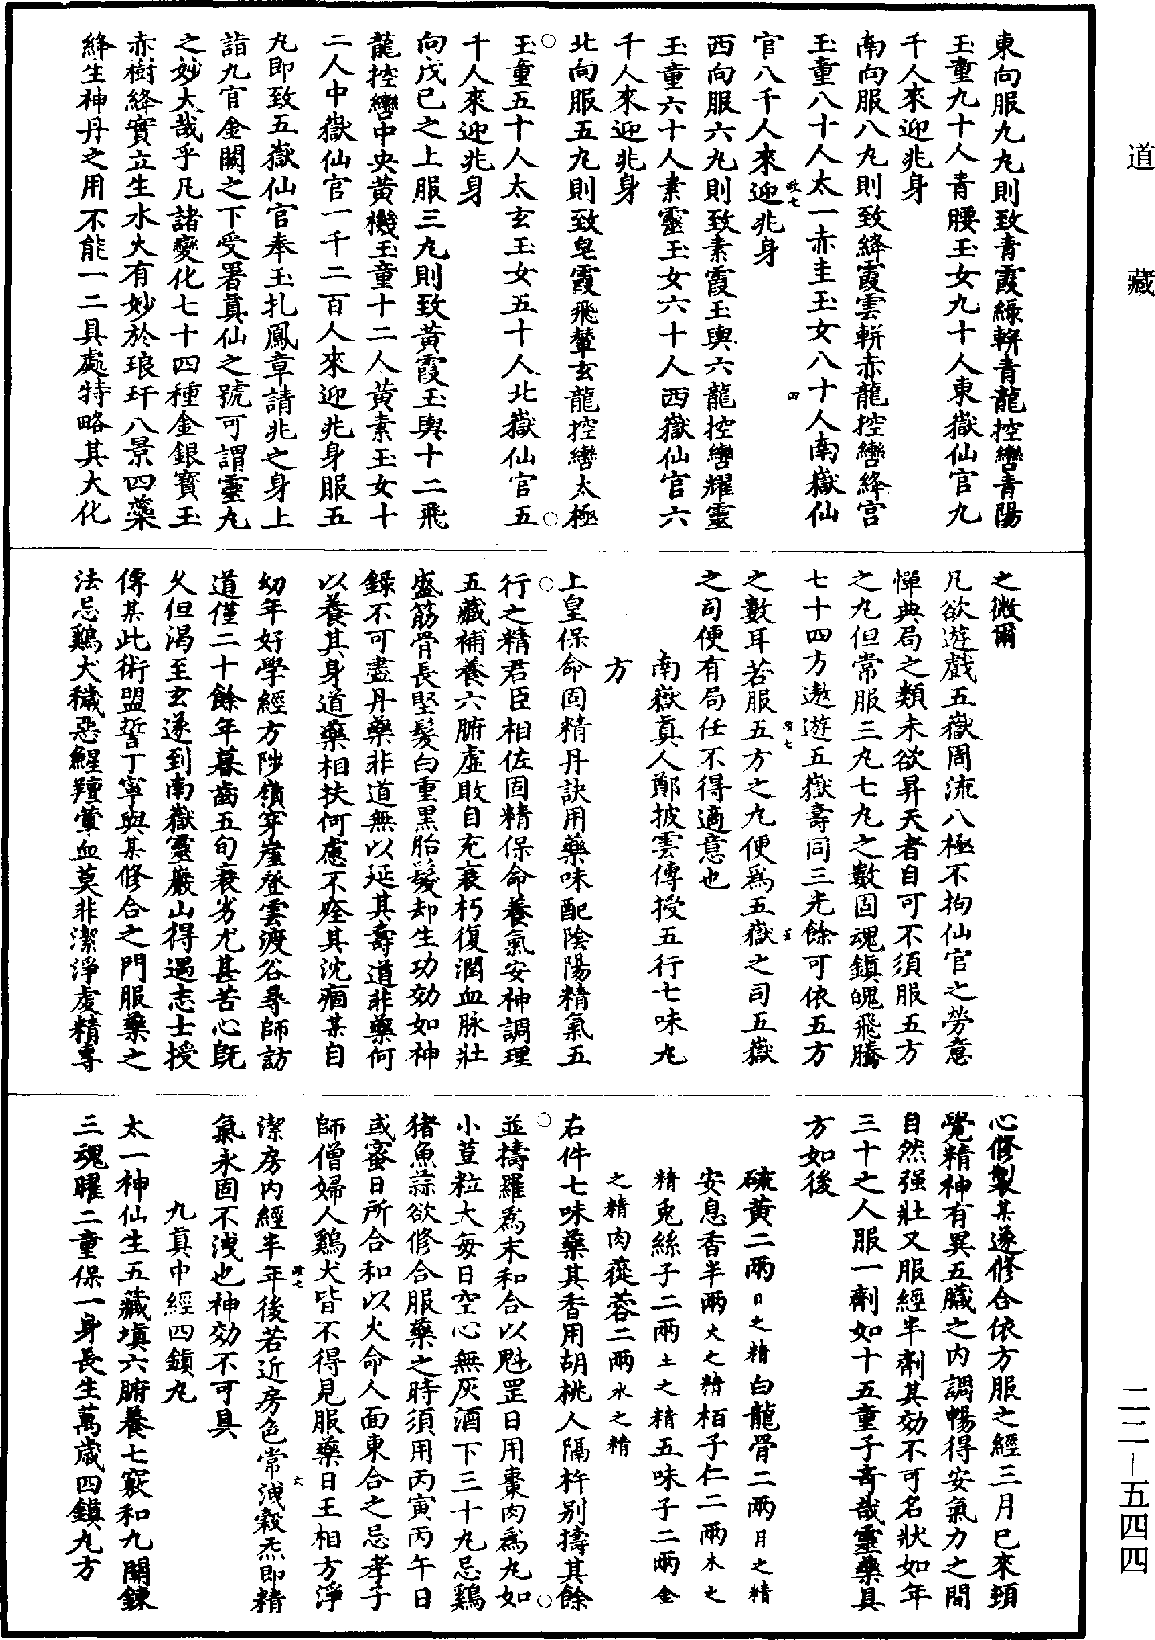 道藏
東向服九丸則致青霞綠軿青龍控轡青陽
玉童九十人青腰玉女九十人東嶽仙官九
千人來迎兆身
南向服八丸則致絳霞雲軿赤龍控轡絳宮
玉童八十人太一赤圭玉女八十人南嶽仙
官八千人來迎兆身
西向服六丸則致素霞玉輿六龍控轡耀靈
玉童六十人素靈玉女六十人西嶽仙官六
千人來迎兆身
北向服五丸則致皂霞飛輦玄龍控轡太極
玉童五十人太玄玉女五十人北嶽仙官五
千人來迎兆身
向戊己之上服三丸則致黃霞玉輿十二飛
龍控轡中央黃機玉童十二人黃素玉女十
二人中嶽仙官一千二百人來迎兆身服五
丸即致五嶽仙官奉玉札鳳章請兆之身上
詣九宮金闕之下受署真仙之號可謂靈丸
之妙大哉乎凡諸變化七十四種金銀寶玉
赤樹絳實立生水火有妙於琅玕八景四藥
絳生神丹之用不能一二具處特略其大化
之微爾
凡欲遊戲五嶽周流八極不拘仙官之勞意
憚典局之類未欲昇天者自可不須服五方
之丸但常服三丸七丸之數固魂鎮魄飛騰
七十四方遨遊五嶽壽同三光餘可依五方
之數耳若服五方之丸便為五嶽之司五嶽
之司便有局任不得適意也
南嶽真人鄭披雲傳授五行七味丸
方
上皇保命固精丹訣用藥味配陰陽精氣五
行之精君臣相佐固精保命養氣安神調理
五藏補養六腑虛敗自充衰朽復潤血脉壯
盛筋骨長堅髮白重黑胎髮却生功効如神
錄不可盡丹藥非道無以延其壽道非藥何
以養其身道藥相扶何慮不痊其沈痼某自
幼年好學經方陟嶺穿崖登雲渡谷尋師訪
道僅二十餘年暮齒五旬衰劣尤甚苦心既
久但渴至玄遂到南嶽靈巖山得遇志士授
傳某此術盟誓丁寧與某修合之門服藥之
法忌鷄犬穢惡鯹羶葷血莫非潔淨虔精專
心修製某遂修合依方服之經三月已來頭
覺精神有異五臟之內調暢得安氣力之間
自然强壯又服經半劑其効不可名狀如年
三十之人服一劑如十五童子奇哉靈藥具
方如後
硫黃二兩日之精白龍骨二兩月之精
安息香半兩火之精栢子仁二兩木之
精兎絲子二兩土之精五味子二兩金
之精肉蓯蓉二兩水之精
右件七味藥其香用胡桃人隔杵別擣其餘
並擣羅為末和合以魁罡日用棗肉為丸如
小荳粒大每日空心無灰酒下三十丸忌鷄
猪魚蒜欲修合服藥之時須用丙寅丙午日
或蜜日所合和以火命人面東合之忌孝子
師僧婦人鷄犬皆不得見服藥日王相方淨
潔房內經半年後若近房色常洩穀炁即精
氣永固不洩也神効不可具
九真中經四鎮丸
太一神仙生五藏填六腑養七竅和九關鍊
三魂曜二童保一身長生萬歲四鎮丸方
二二—五四四